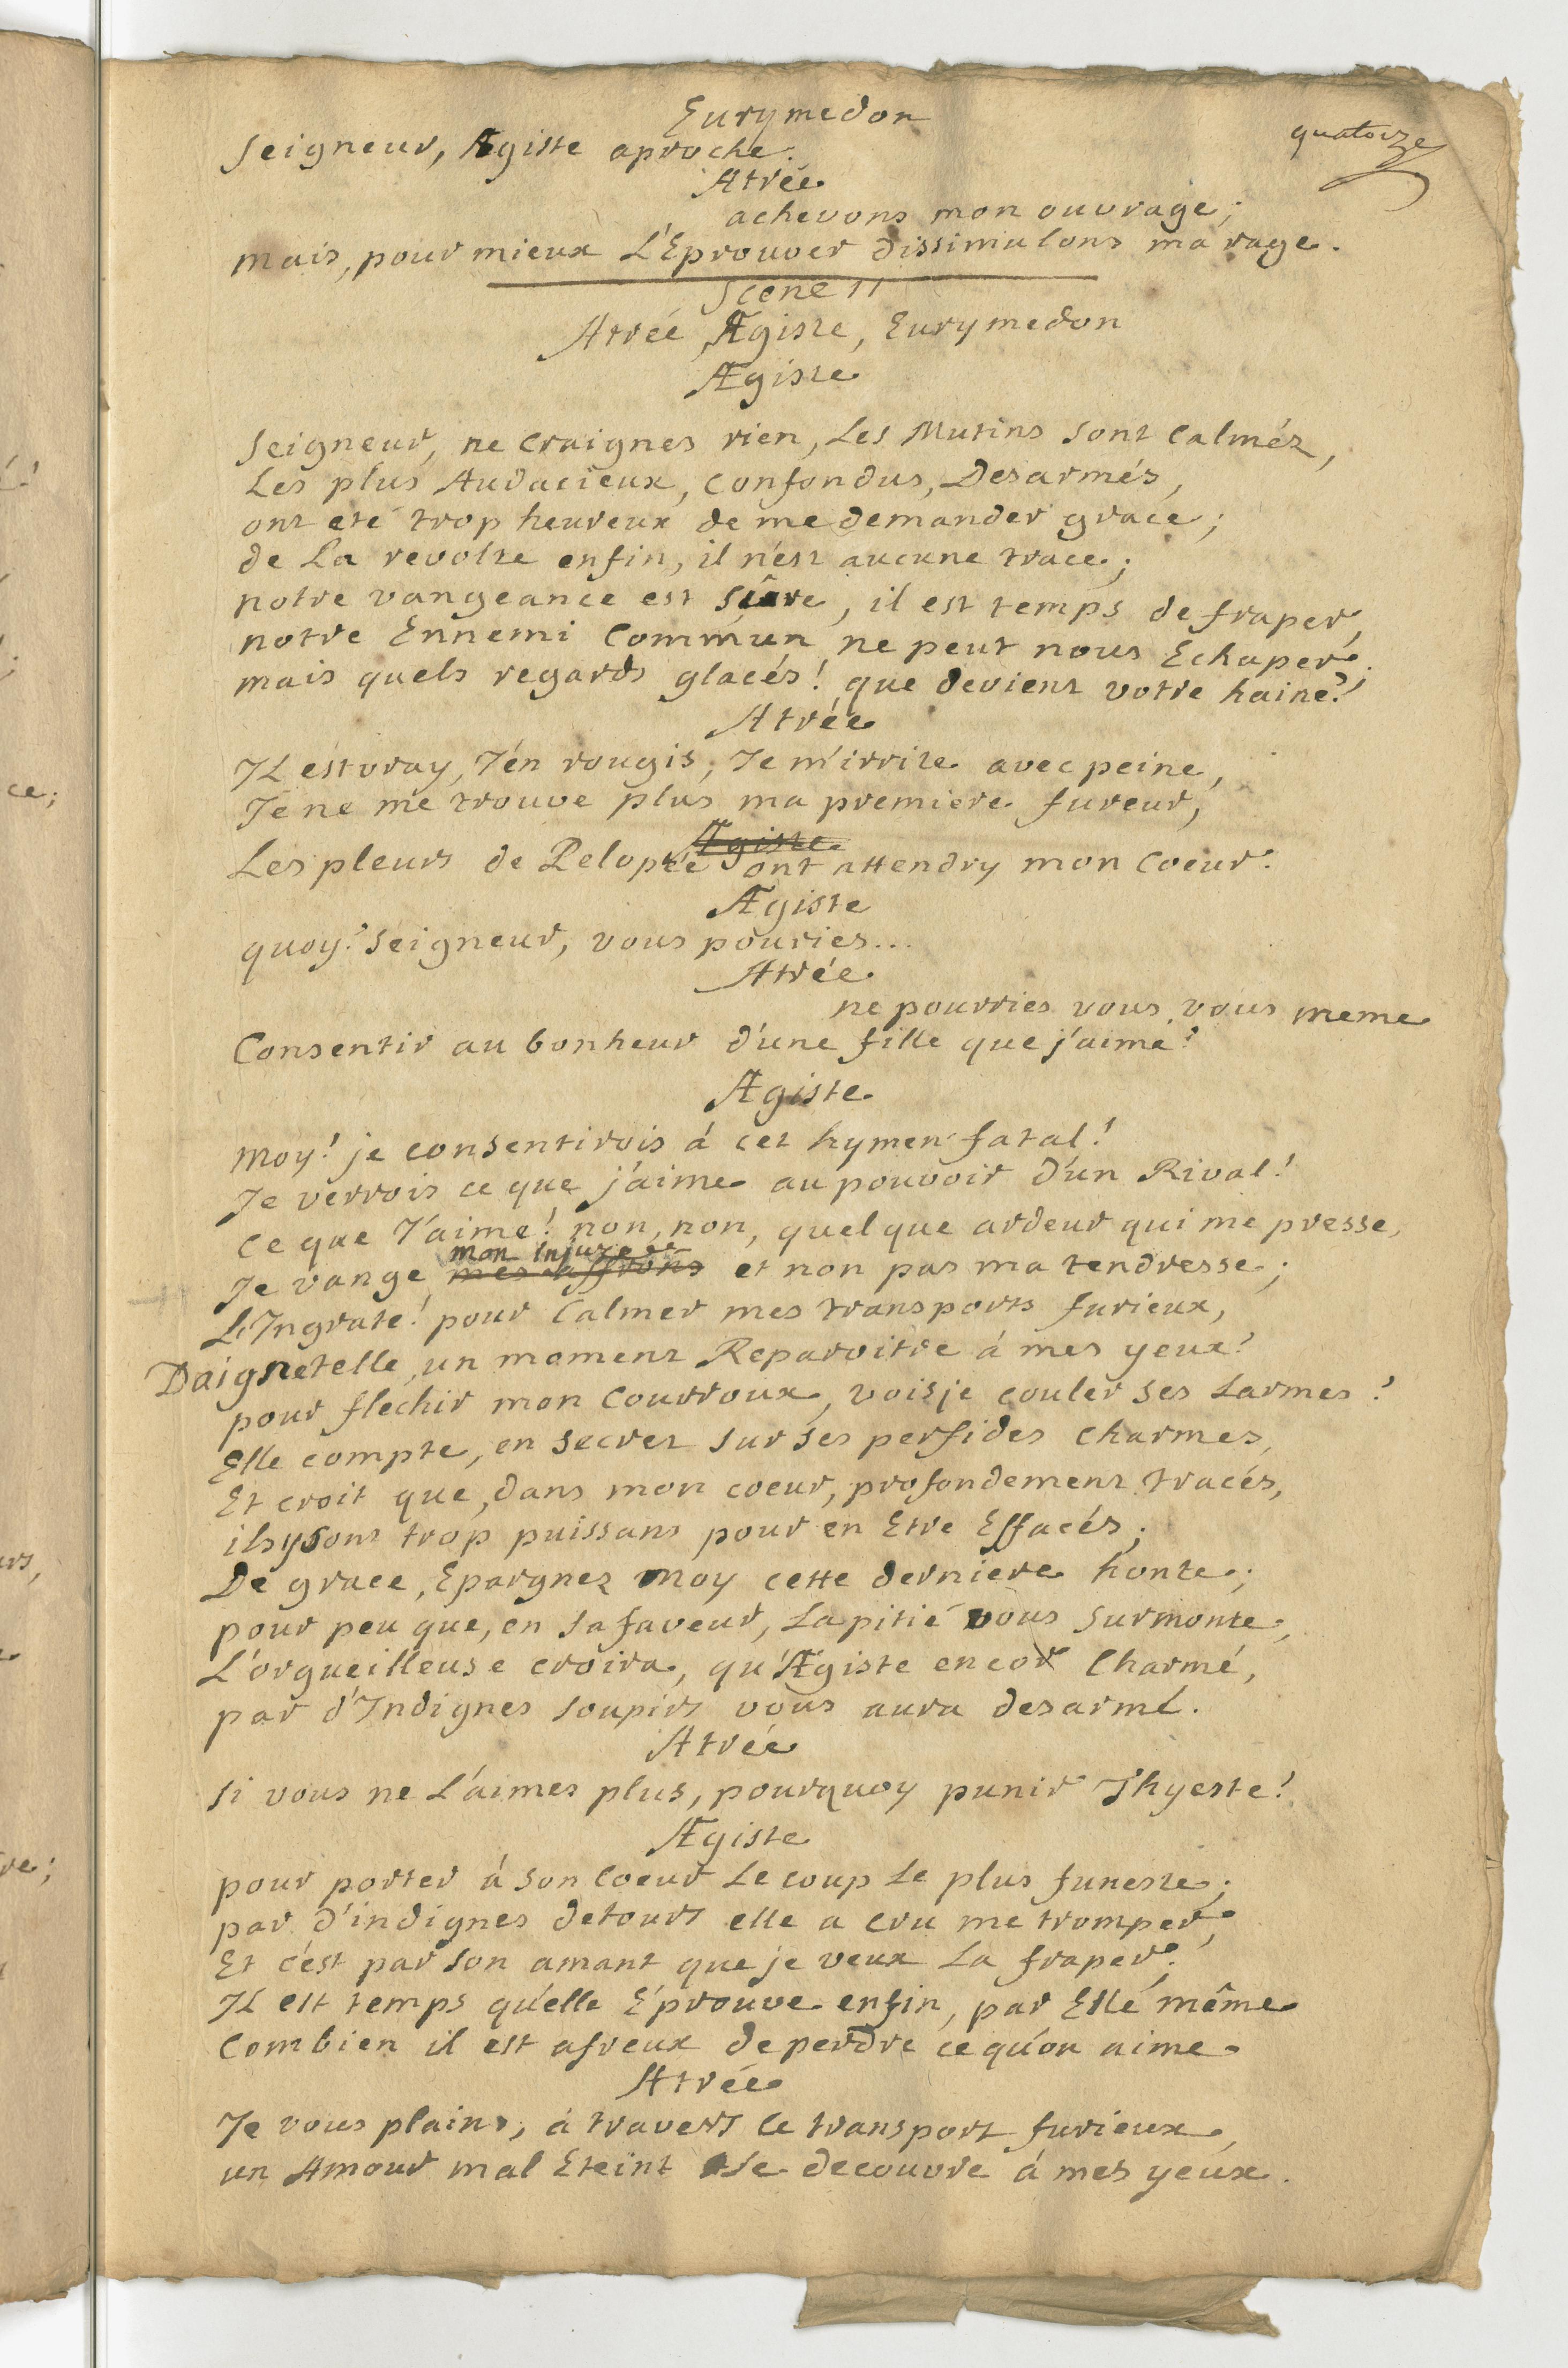 Eurymedon
quatorze
Seigneur, Ægiste aproche.
Atrée
achevons mon ouvrage;
mais, pour mieux L'Eprouver dissimulons ma rage.
Scene 11
Atrée, Ægiste, Eurymedon
Ægiste
Seigneur, ne craignes rien, Les Mutins sont calmés,
Les plus Audacieux, confondus, Desarmés,
ont eté trop heureux de me demander grace;
de La revolte enfin, il n'est aucune trace;
notre vangeance est sûre, il est temps de fraper,
notre Ennemi Commun ne peut nous Echaper;
mais quels regards glacés! que devient votre haine?
Atrée
Il est vray, J'en rougis, Je m'irrite avec peine,
Je ne me trouve plus ma premiere fureur,
Ægiste
Les pleurs de Pelopée ont attendry mon Coeur.
Ægiste
quoy? Seigneur, vous pouries...
Atrée
ne pourries vous vous meme
Consentir au bonheur d'une fille que j'aime?
Ægiste
Moy! je consentirois á cet hymen fatal!
Je verrois ce que j'aime au pouvoir d'un Rival!
Ce que J'aime! non, non, quel que ardeur qui me presse,
mon Injure
Je vange mes affrons et non pas ma tendresse;
L'Ingrate! pour Calmer mes transports furieux,
Daignetelle, un moment Reparoitre á mes yeux?
pour flechir mon Courroux, voisje couler ses Larmes?
Elle compte, en secret sur ses perfides charmes,
Et croit que, dans mon coeur, profondement tracés,
ilsysont trop puissans pour en Etre Effacés;
De grace, Epargnez moy cette derniere honte;
pour peu que, en sa faveur, La pitié vous surmonte,
L'orgueilleuse croira, qu'Ægiste encor Charmé,
par d'Indignes soupirs vous aura desarmé.
Atrée
Si vous ne L'aimes plus, pourquoy punir Thyeste?
Ægiste
pour porter á son Coeur Le coup Le plus funeste;
par d'indignes detours elle a cru me tromper,
Et c'est par son amant que je veux La fraper;
Il est temps qu'elle Eprouve enfin, par Elle même
Combien il est afreux de perdre ce qu'on aime.
Atrée
Je vous plains, á travers Ce transport furieux,
un Amour mal Eteint se decouvre á mes yeux.